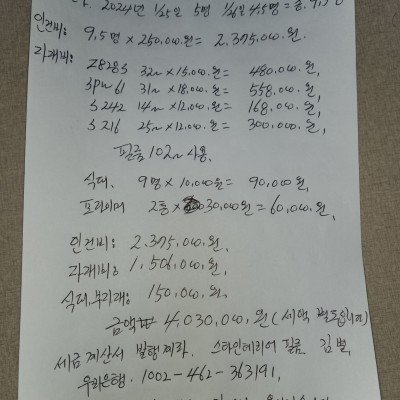 2024년 1/25일 5명 1/26일 4.5명 = 총. 9.5명
인건비: 9.5명 × 250,000.원 = 2.375.000.원.
자재비: ZB285 32m × 15.000.원 = 480.000.원,
SPW61 31m × 18.000.원 = 558.000.원,
S242 14m × 12.000.원 = 168.000.원,
S216 25m × 12.000.원 = 300.000.원,
필름 102m 사용.
식대. 9명 × 10,000원 = 90.000원,
프라이머 2통 × 30.000원 = 60.000원,
인건비: 2.375.000.원,
자재비: 1.506.000.원,
식대, 부자재: 150.000원,
금액 4.030.000.원 (세액 별도입니다)
세금계산서 발행께라. 스타인테리어 필름. 김별,
우리은행. 1002-462-363191,